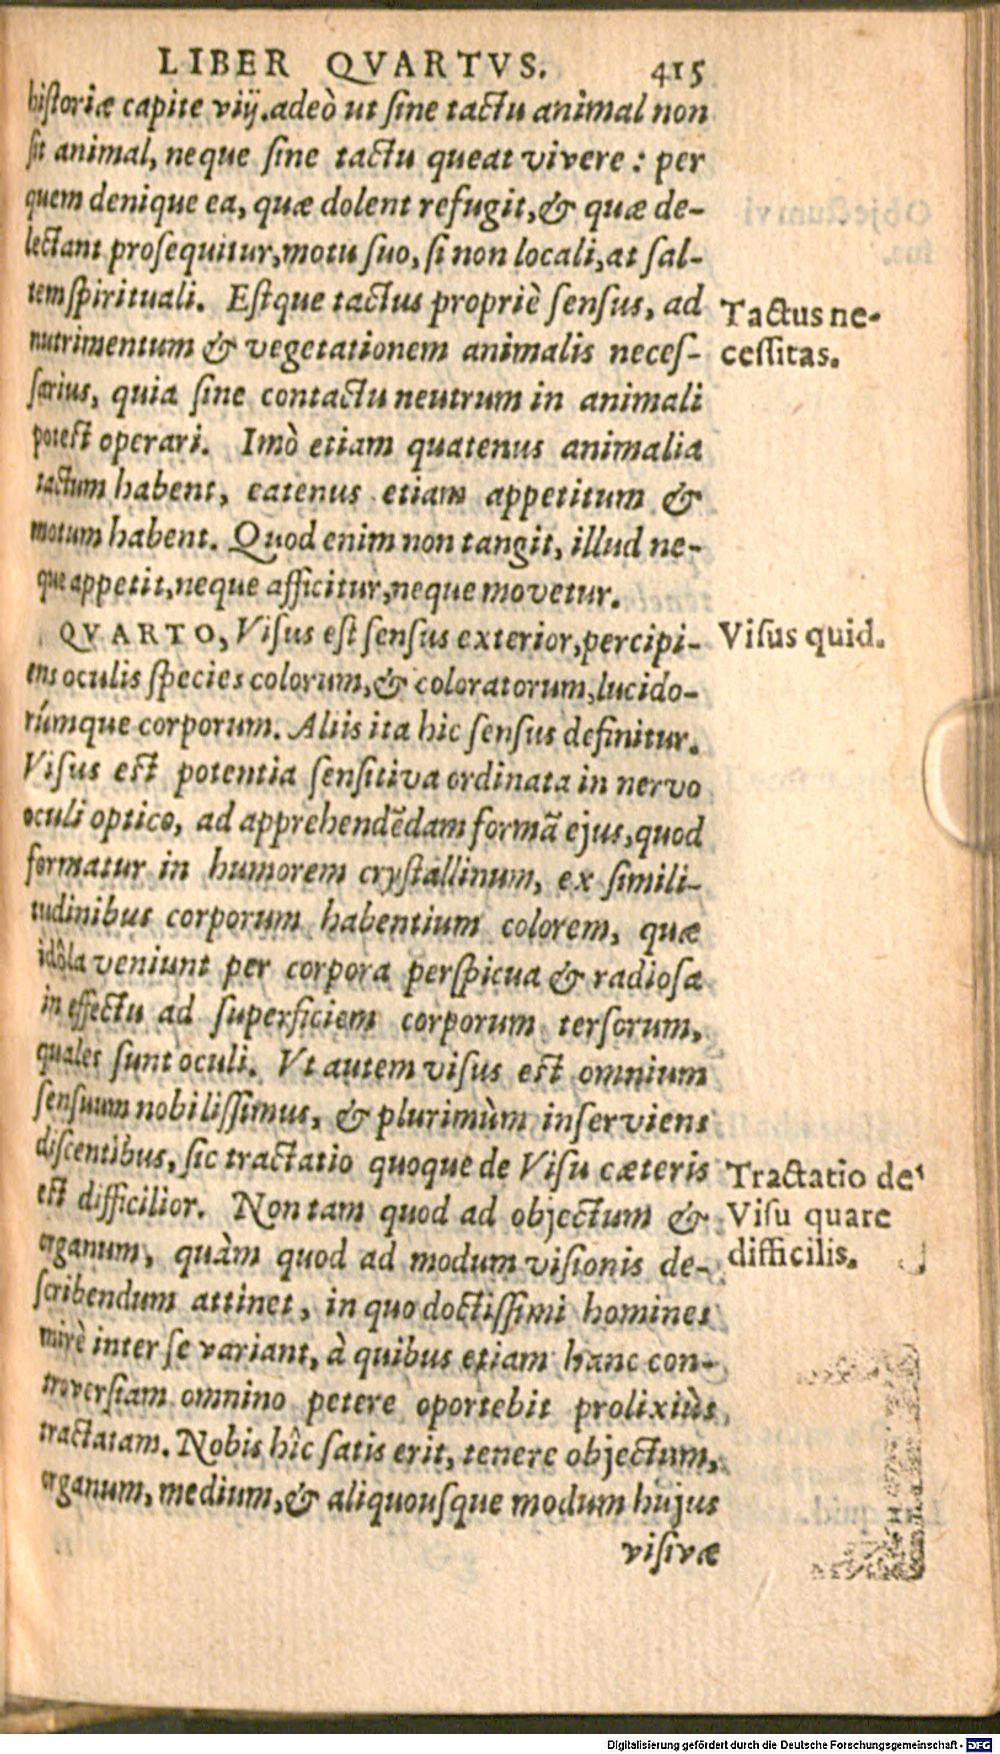 LIBER QVARTVS. 415
historiæ capite vij. adeò ut sine tactu animal non
sit animal, neque sine tactu queat vivere: per
quem denique ea, quæ dolent refugit, & quæ de-
lectant prosequitur, motu suo, si non locali, at sal-
tem spirituali. Estque tactus propriè sensus, ad
nutrimentum & vegetationem animalis neces-
sarius, quia sine contactu neutrum in animali
potest operari. Imò etiam quatenus animalia
tactum habent, eatenus etiam appetitum &
motum habent. Quod enim non tangit, illud ne-
que appetit, neque afficitur, neque movetur.
Tactus ne-
cessitas.
QVARTO, Visus est sensus exterior, percipi-
ens oculis species colorum, & coloratorum, lucido-
rúmque corporum. Aliis ita hic sensus definitur.
Visus est potentia sensitiva ordinata in nervo
oculi optico, ad apprehendēdam formā ejus, quod
formatur in humorem crystallinum, ex simili-
tudinibus corporum habentium colorem, quæ
idôla veniunt per corpora perspicua & radiosa
in effectu ad superficiem corporum tersorum,
quales sunt oculi. Vt autem visus est omnium
sensuum nobilissimus, & plurimùm inserviens
discentibus, sic tractatio quoque de Visu cæteris
est difficilior. Non tam quod ad objectum &
organum, quàm quod ad modum visionis de-
scribendum attinet, in quo doctissimi homines
mirè inter se variant, à quibus etiam hanc con-
troversiam omnino petere oportebit prolixiùs
tractatam. Nobis hîc satis erit, tenere objectum,
organum, medium, & aliquousque modum hujus
visivæ
Visus quid.
Tractatio de
Visu quare
difficilis.
Digitalisierung gefördert durch die Deutsche Forschungsgemeinschaft - DFG